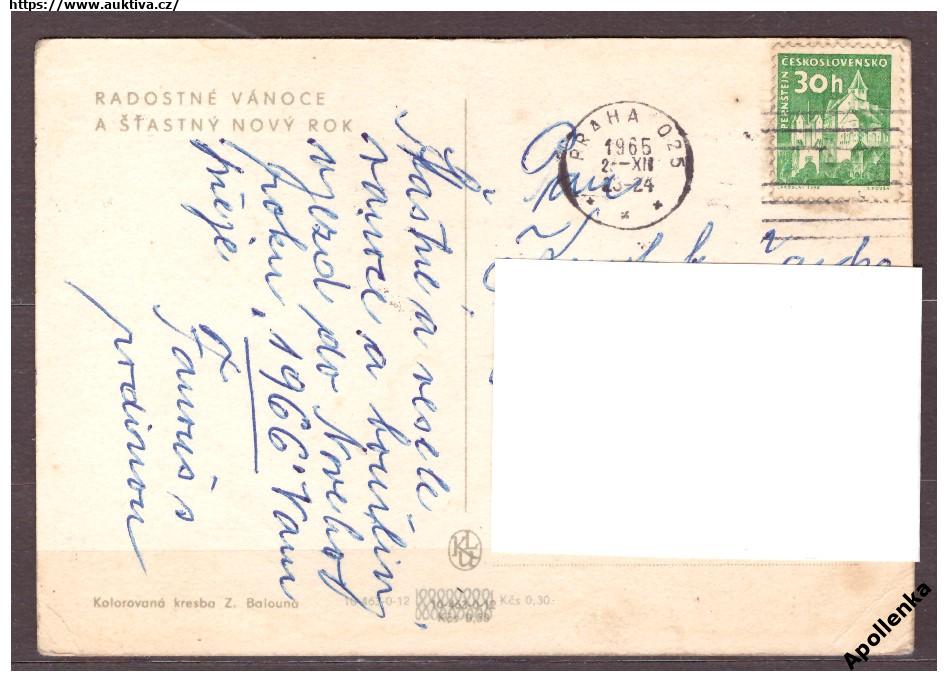 https://www.auktiva.cz/
RADOSTNÉ VÁNOCE
A ŠŤASTNÝ NOVÝ ROK
PRAHA 025
1965
-XII
23-24
ČESKOSLOVENSKO
30h
PERNŠTEJN
Šťastné a veselé
vánoce a
vjezd do Nového
roku 1966 Vám
přeje
s
rodinou
Kolorovaná kresba Z. Balouna
10-463-0-12
Kčs 0,30
10-463-0-12
Kčs 0,30
Apollenka